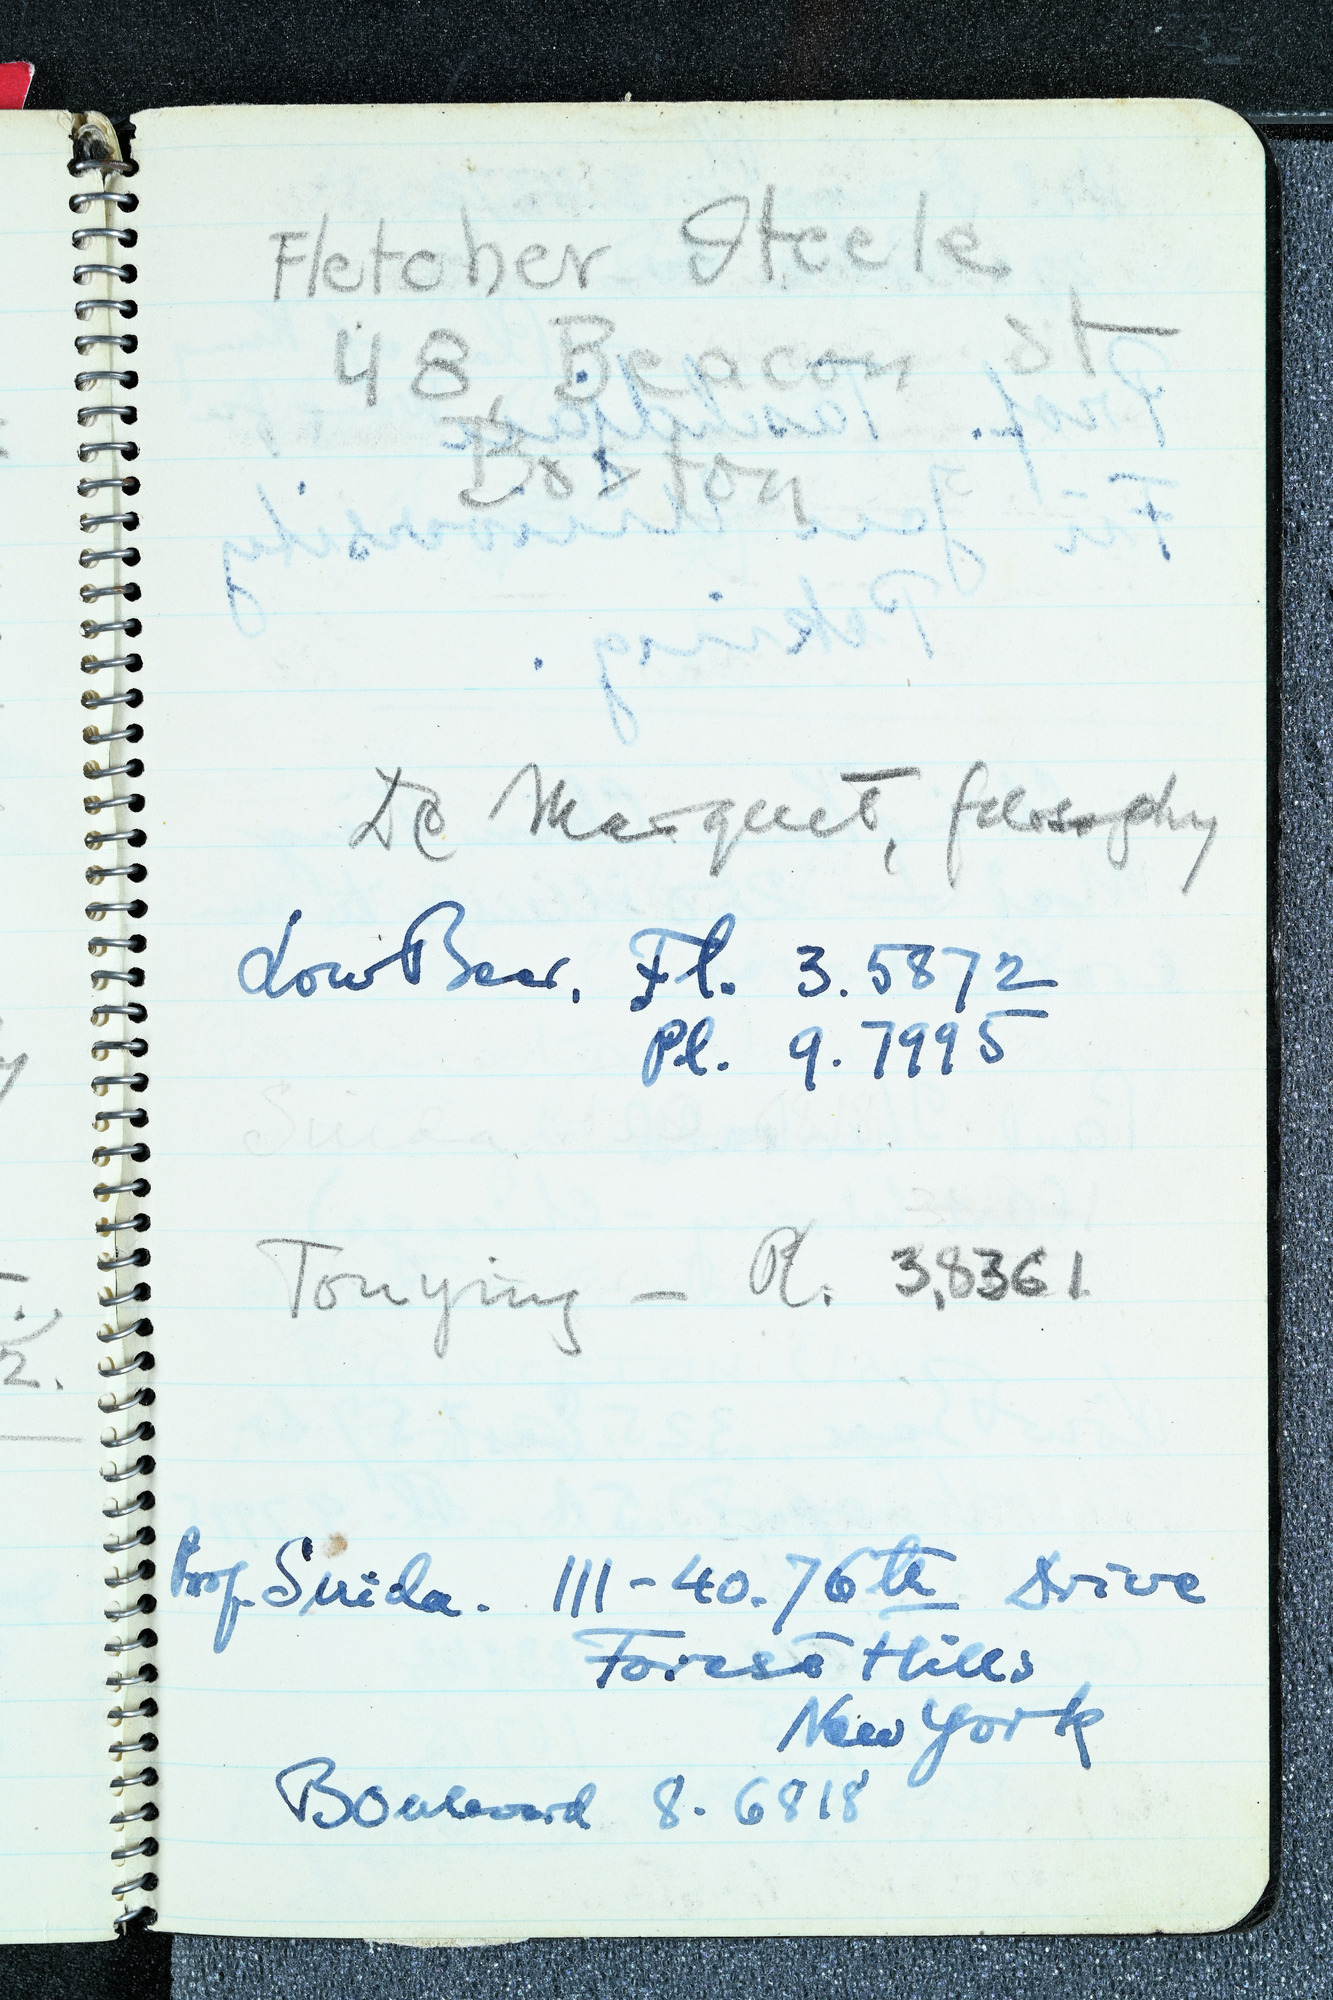 Fletcher Steele
48 Beacon St
Boston
De Marquet, filosophy
Low Beer, Fl. 3.5872
Pl. 9.7995
Tonying – Pl. 3,8361
Prof. Suida. 111-40.76th Drive
Forest Hills
New York
Boulevard 8. 6818